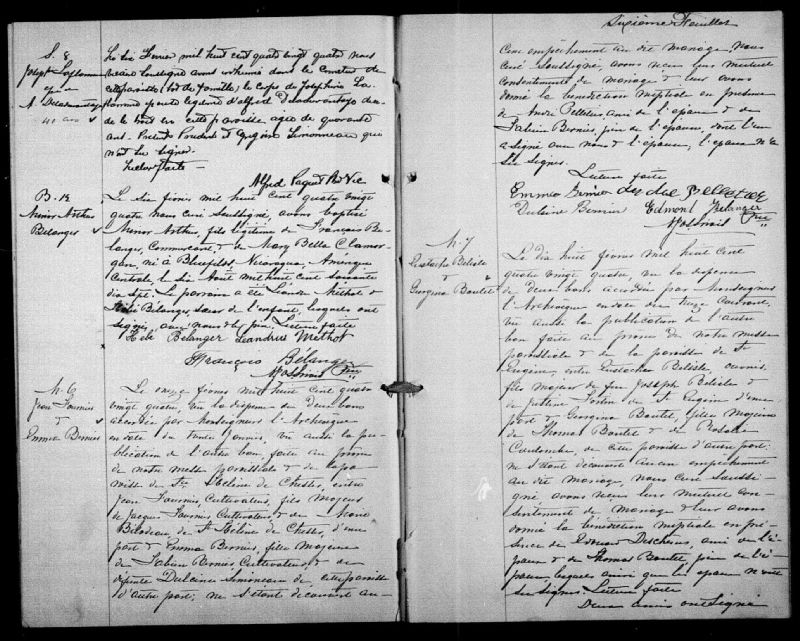 S. 8
Joseph. Laflamme
A. Descormontaye
41 ans
Le six fevrier mil huit cent quatre vingt quatre nous
soussigné avons inhumé dans le cimetière de
cette paroisse le corps de Josephine La
flamme épouse légitime d'Alfred
de en cette paroisse agée de quarante
ans. Présents Prudent & Simonneau qui
n'ont su signer.
Lecture faite
Alfred Paquet Ptr Vic
B. 12
Menor Arthur
Belanger
Le six fevrier mil huit cent quatre vingt
quatre nous curé soussigné, avons baptisé
Menor Arthur, fils légitime de François Be
langer, Commerçant & de Mary Bella Clamer-
gan, né à Bluefields, Nicaragua, Amérique
Centrale, le six Août mil huit cent soixante
dix sept. Le parrain a été Léandre Méthot &
Bélanger, sœur de l'enfant, lesquels ont
signés, avec nous & le père. Lecture faite
Belanger Leandrus Methot
François Bélanger
Ptre
M. 6
Jean Fournier
&
Emma Bernier
Le onze fevrier mil huit cent quatre
vingt quatre, vu la dispense de deux bans
accordée par Monseigneur l'Archevêque
en date du trente janvier, vu aussi la pu-
blication de l'autre ban, faite au prône
de notre messe paroissiale & de la pa
roisse de Ste Hélène de Chester, entre
Jean Fournier, Cultivateur, fils majeur
de Jacques Fournier Cultivateur & de Marie
Bilodeau de Ste Hélène de Chester, d'une
part & Emma Bernier, fille majeure
de Fabien Bernier, Cultivateur, & de
défunte Dulcinée Simoneau de cette paroisse
d'autre part; ne s'étant découvert au-
Sixième Feuillet
cun empêchement au dit mariage, nous
curé soussigné, avons reçu leur mutuel
consentement de mariage & leur avons
donné la bénédiction nuptiale en présence
de André Pelletier ami de l'époux & de
Fabien Bernier, père de l'épouse, dont l'un
a signé avec nous & l'épouse, l'époux n'a
su signer.
Lecture faite
Emma Bernier André Pelletier
Dulcine Bernier Edmond Belanger
Ptre
M. 7
Eustache Belisle
&
Georgina Boutet
Le dix huit fevrier mil huit cent
quatre vingt quatre, vu la dispense
de deux bans accordée par Monseigneur
l'Archevêque en date du treize courant,
vu aussi la publication de l'autre
ban faite au prône de notre messe
paroissiale & de la paroisse de St
Eugène, entre Eustache Belisle, ouvrier,
fils majeur de feu Joseph Belisle &
de Justine Fortin de St Eugène d'une
part & Georgina Boutet, fille majeure
de Thomas Boutet & de Rosalie
Coulombe, de cette paroisse d'autre part;
ne s'étant découvert aucun empêchement
au dit mariage, nous curé soussi-
gné avons reçu leur mutuel con-
sentement de mariage & leur avons
donné la bénédiction nuptiale en pré-
sence de Edouard Deschenes, ami de l'é
poux & de Thomas Boutet père de l'é-
pouse lesquels ainsi que les époux n'ont
su signer. Lecture faite
Deux amis ont signé